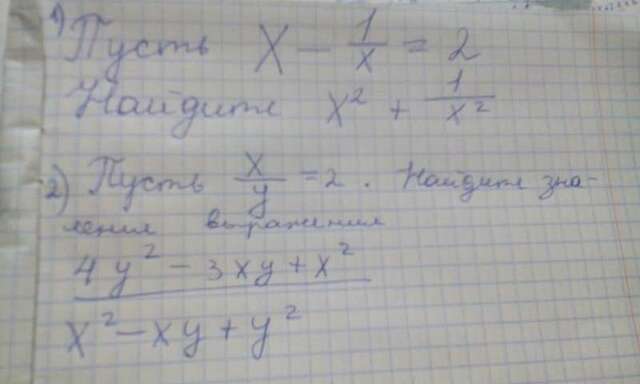 1) Пусть x - 1/x = 2
Найдите x² + 1/x²
2) Пусть x/y = 2. Найдите зна-
чения выражения
4y² - 3xy + x²
x² - xy + y²